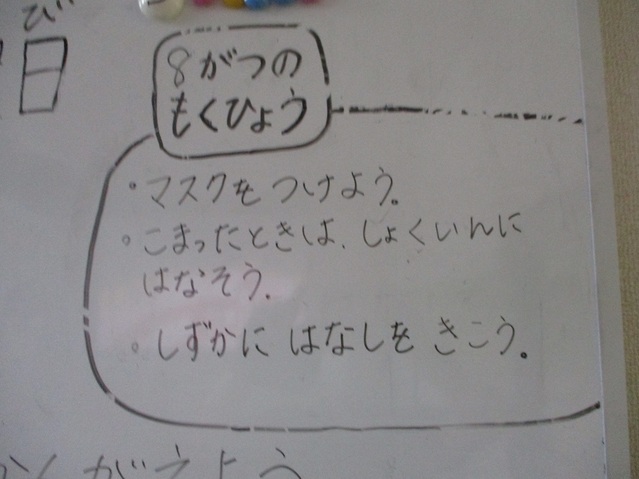 び
日
8がつの
もくひょう
・マスクを つけよう。
・こまったときは、しょくいんに
はなそう。
・しずかに はなしを きこう。
かんがえよう